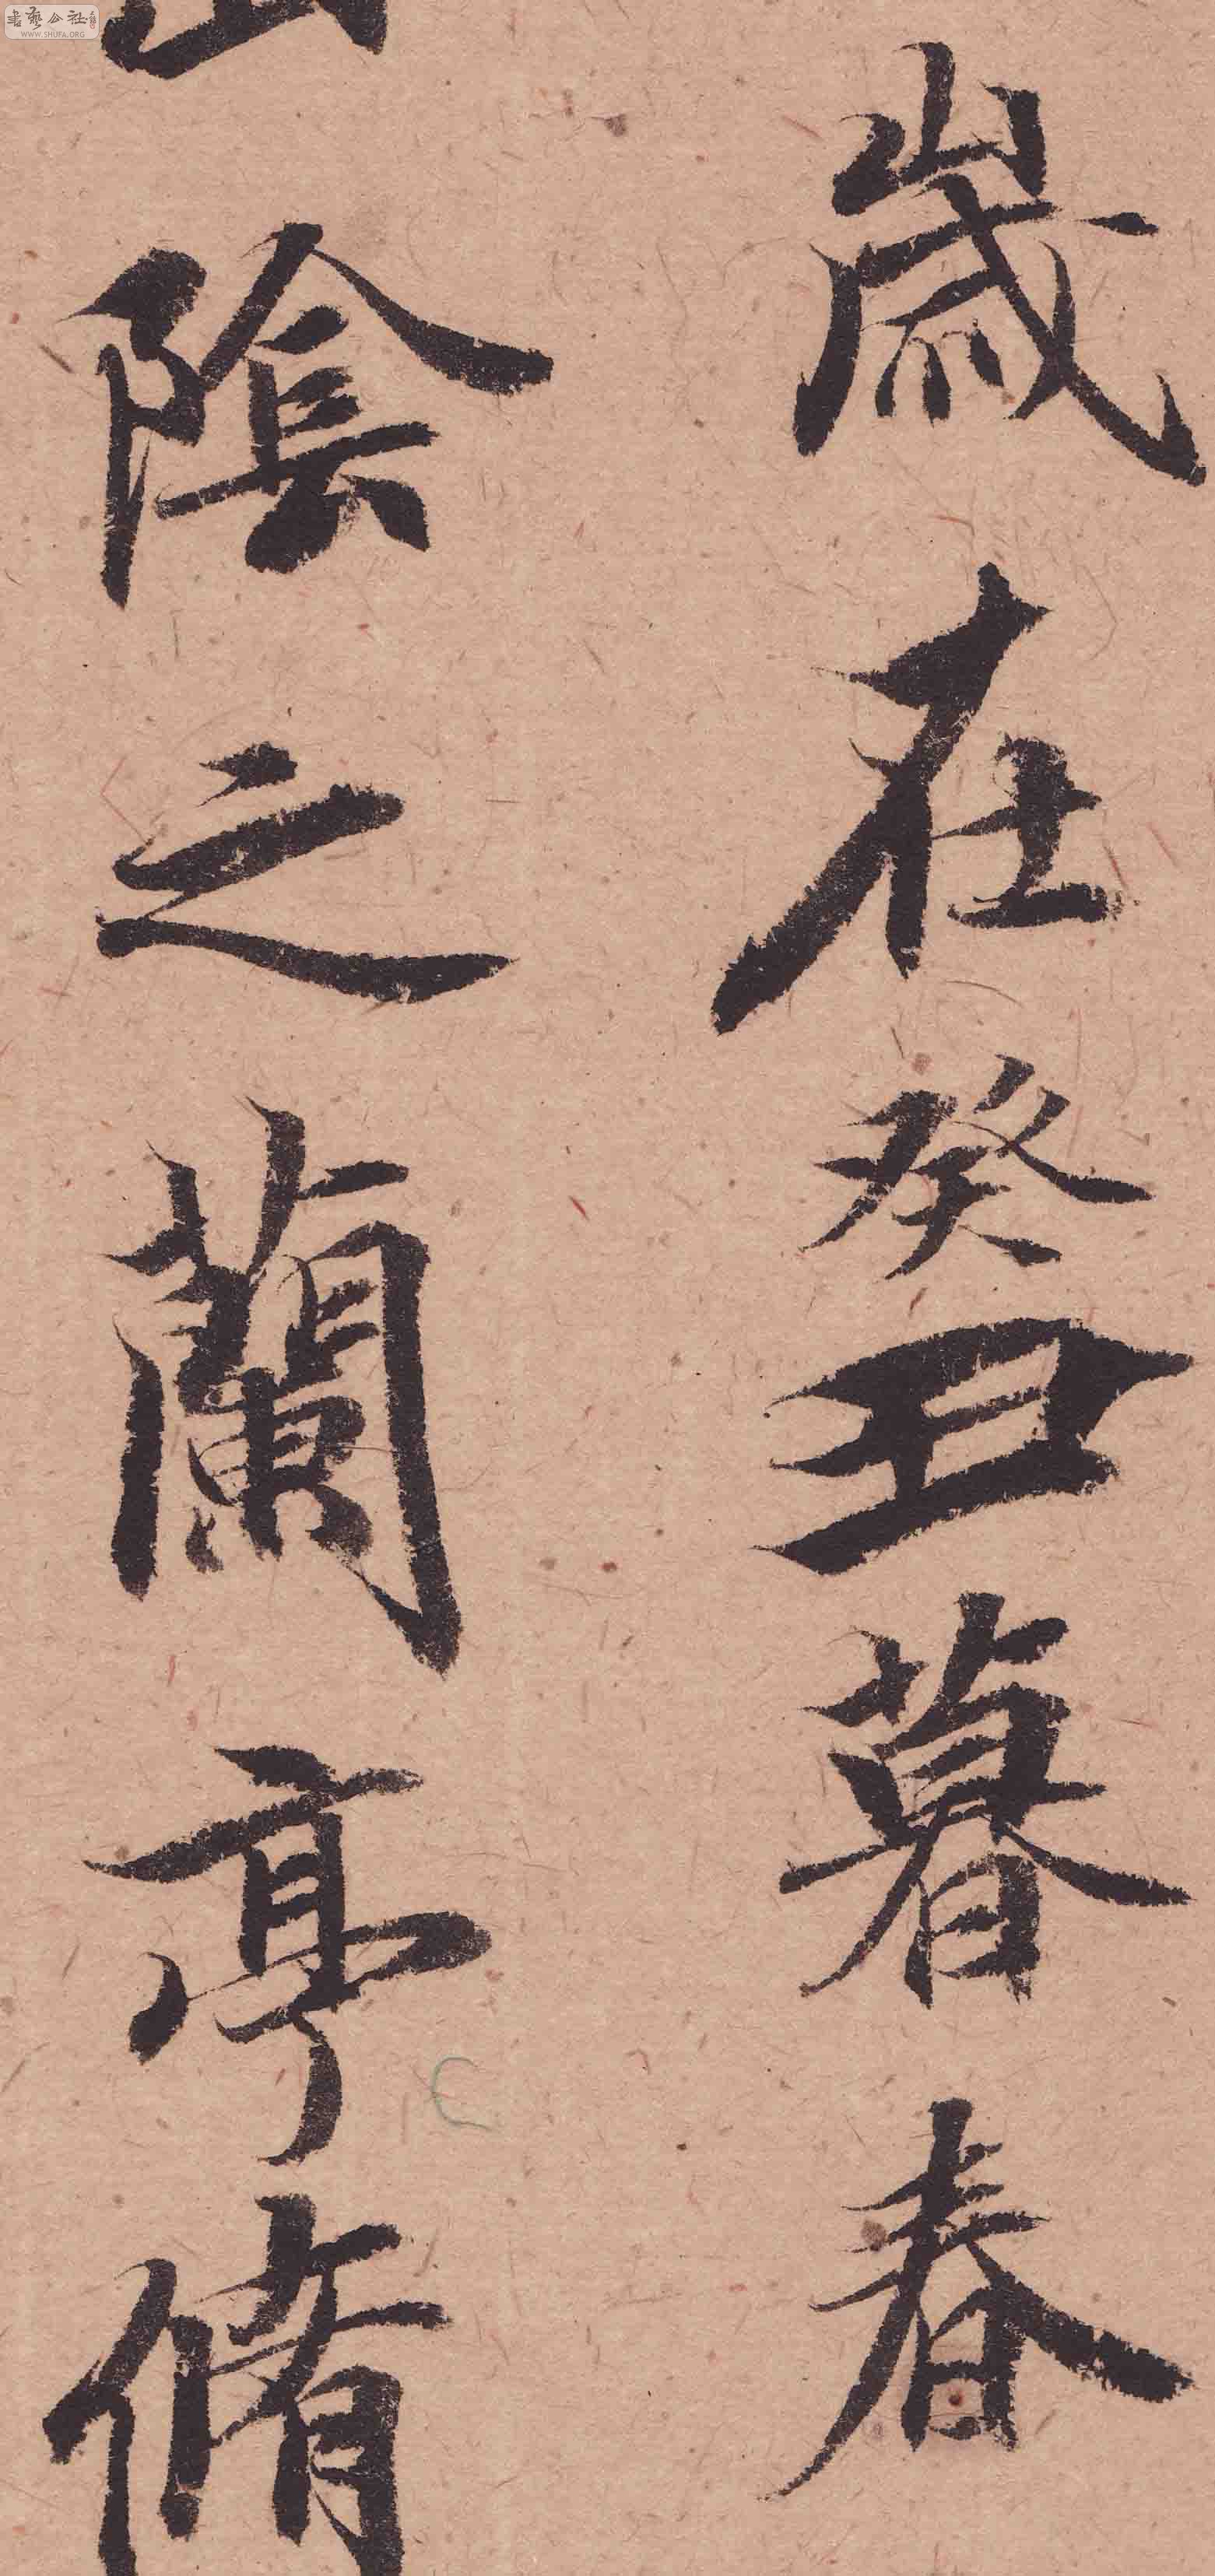 歲在癸丑暮春
山陰之蘭亭脩
書藝公社
WWW.SHUFA.ORG